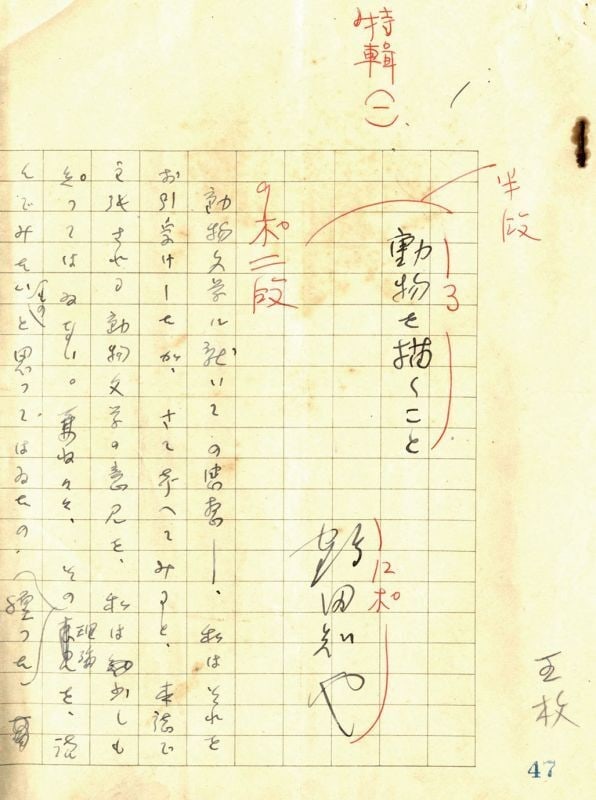 特輯(一)
半段
13
動物を描くこと
12ポ
鶴田知也
9ポ二段
動物文学に就いての感想――、私はそれを
お引受けしたが、さて考へてみると、本誌で
主張される動物文学の意見を、私は少しも
知つてはゐない。その理論を、読
んでみたいと思つてはゐたの
五枚
47